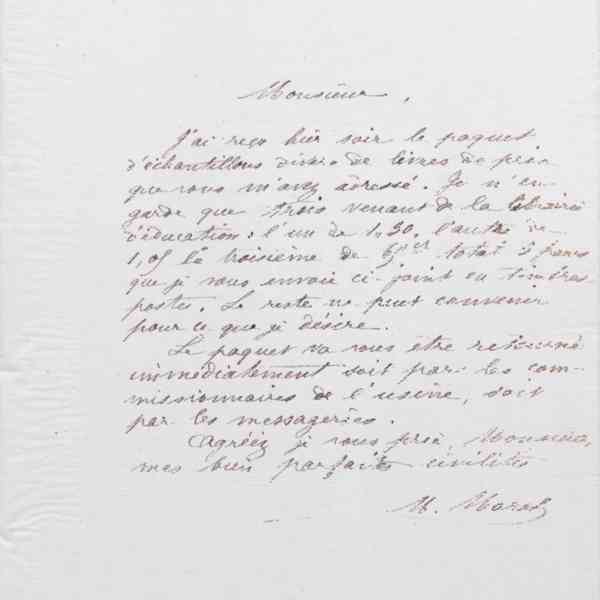 Monsieur,
J'ai reçu hier soir le paquet
d'échantillons divers de livres de prix
que vous m'avez adressé. Je n'en
garde que trois venant de la librairie
d'éducation : l'un de 1.30. l'autre de
1,05 le troisième de 65 cs total 3 francs
que je vous envoie ci-joint en timbres
postes. Le reste ne peut convenir
pour ce que je désire.
Le paquet va vous être retourné
immédiatement soit par les com-
missionnaires de l'usine, soit
par les messageries.
Agréez je vous prie, Monsieur,
mes bien parfaites civilités
M.